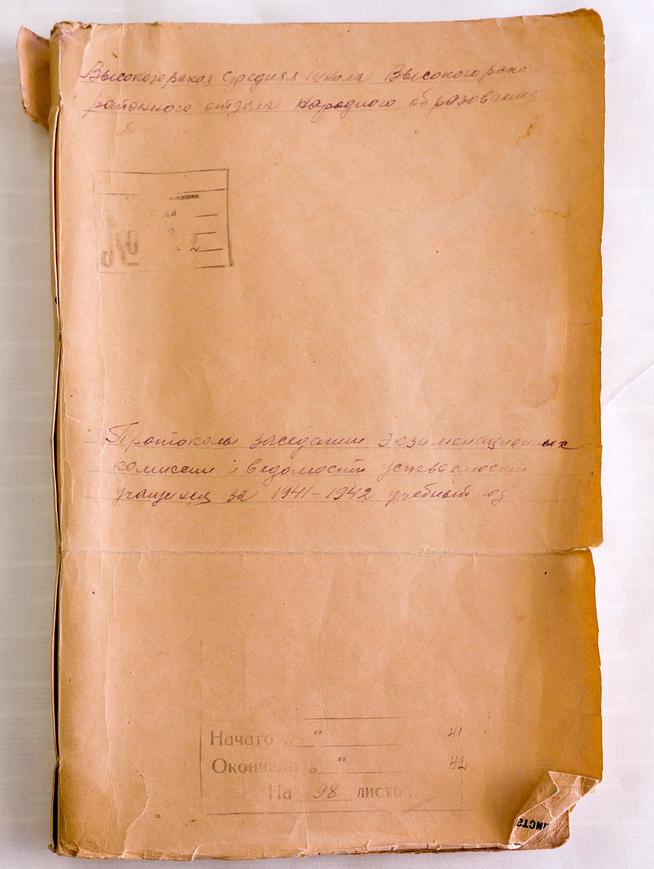 Высокогорская средняя школа Высокогорско
районного отдела народного образования
2
Протоколы заседании экзаменационных
комиссии и ведомости успеваемости
учащихся за 1941-1942 учебный год
Начато „ “ 41
Окончено „ “ 42
На 98 листа
ЛИСТА